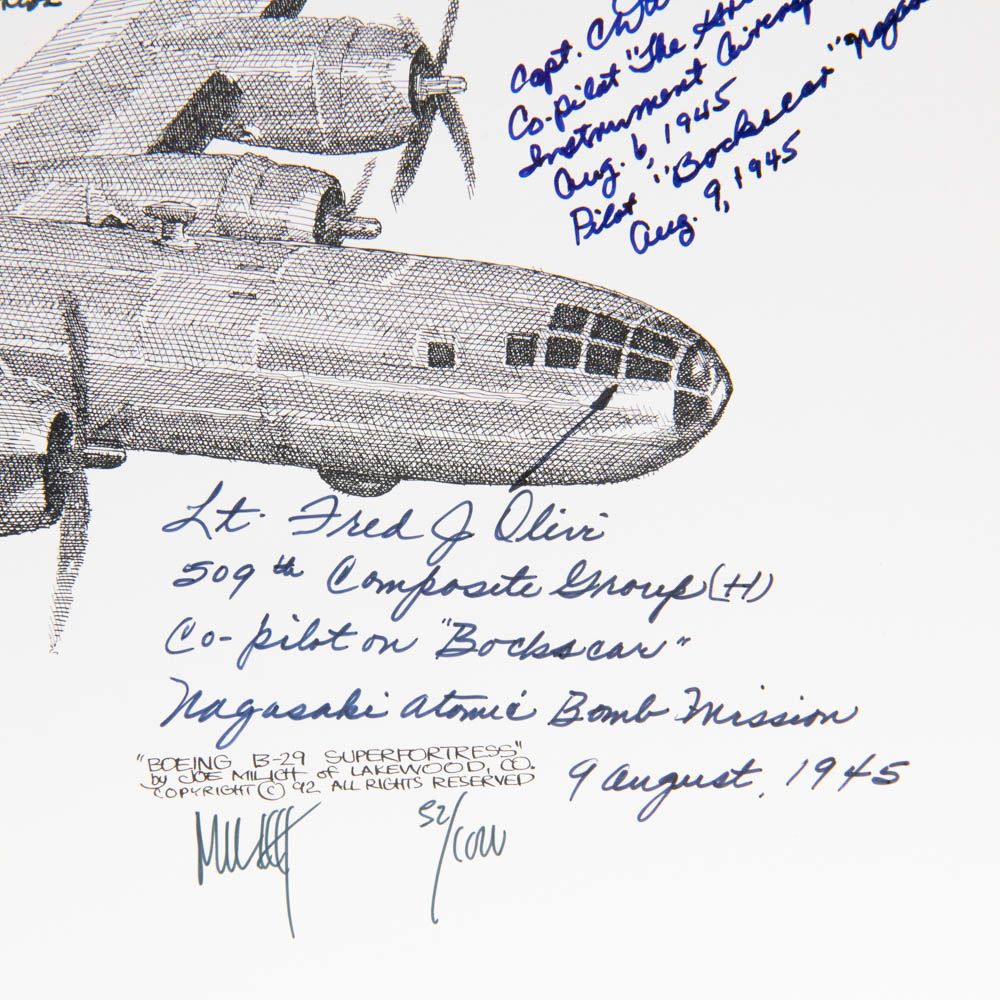 Capt.
Co-pilot "The
Instrument
Aug. 6, 1945
Pilot "Bockscar"
Aug. 9, 1945
Lt. Fred J Olivi
509th Composite Group (H)
Co-pilot on "Bockscar"
Nagasaki Atomic Bomb Mission
9 August, 1945
"BOEING B-29 SUPERFORTRESS"
by JOE MILICH of LAKEWOOD, CO.
COPYRIGHT © '92 ALL RIGHTS RESERVED